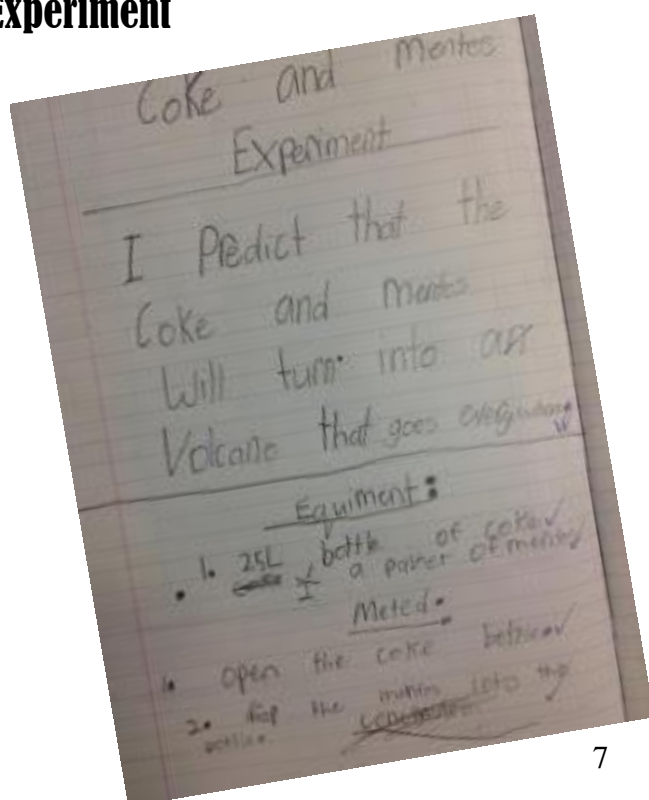 Experiment
Coke and mentos
Experiment
I Predict that the
Coke and mentos
Will turn into an
Volcano that goes everywhere
Equiment:
1. 25L bottle of coke
a paket of mentos
Meted.
1. open the coke
2. the into the
7